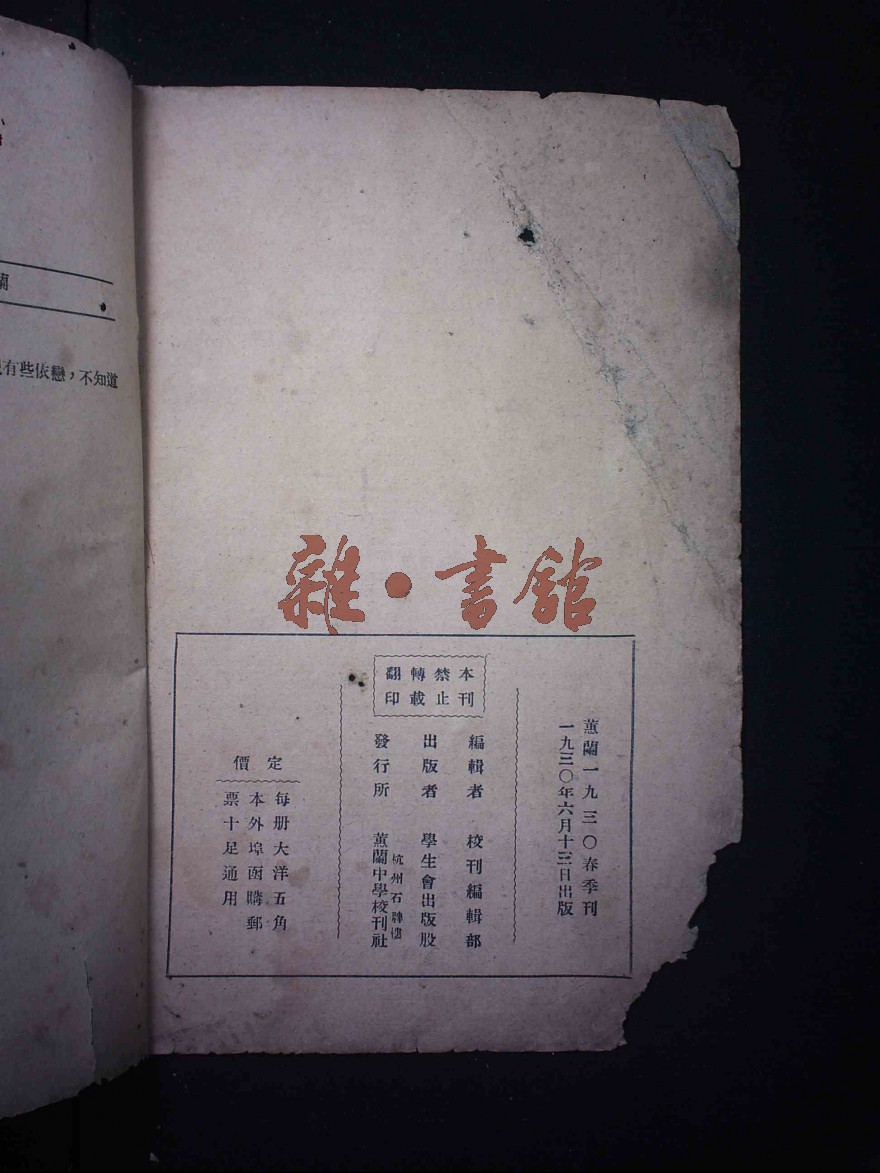 蕙蘭一九三〇春季刊
一九三〇年六月十三日出版
本刊
禁止
轉載
翻印
編輯者 校刊編輯部
出版者 學生會出版股
發行所 杭州石牌樓
蕙蘭中學校刊社
定價
每册大洋五角
本外埠函購郵
票十足通用
雜·書館
蘭
有些依戀，不知道